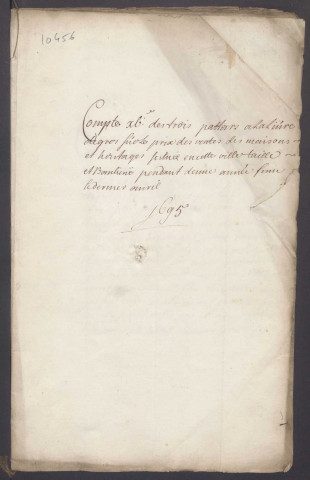 10456
Compte xbe. des trois pattars a la livre
de gros sur le prix des ventes des maisons
et heritages scituez en cette ville taille
et Banlieuë pendant d'une année finie
le dernier avril
1695